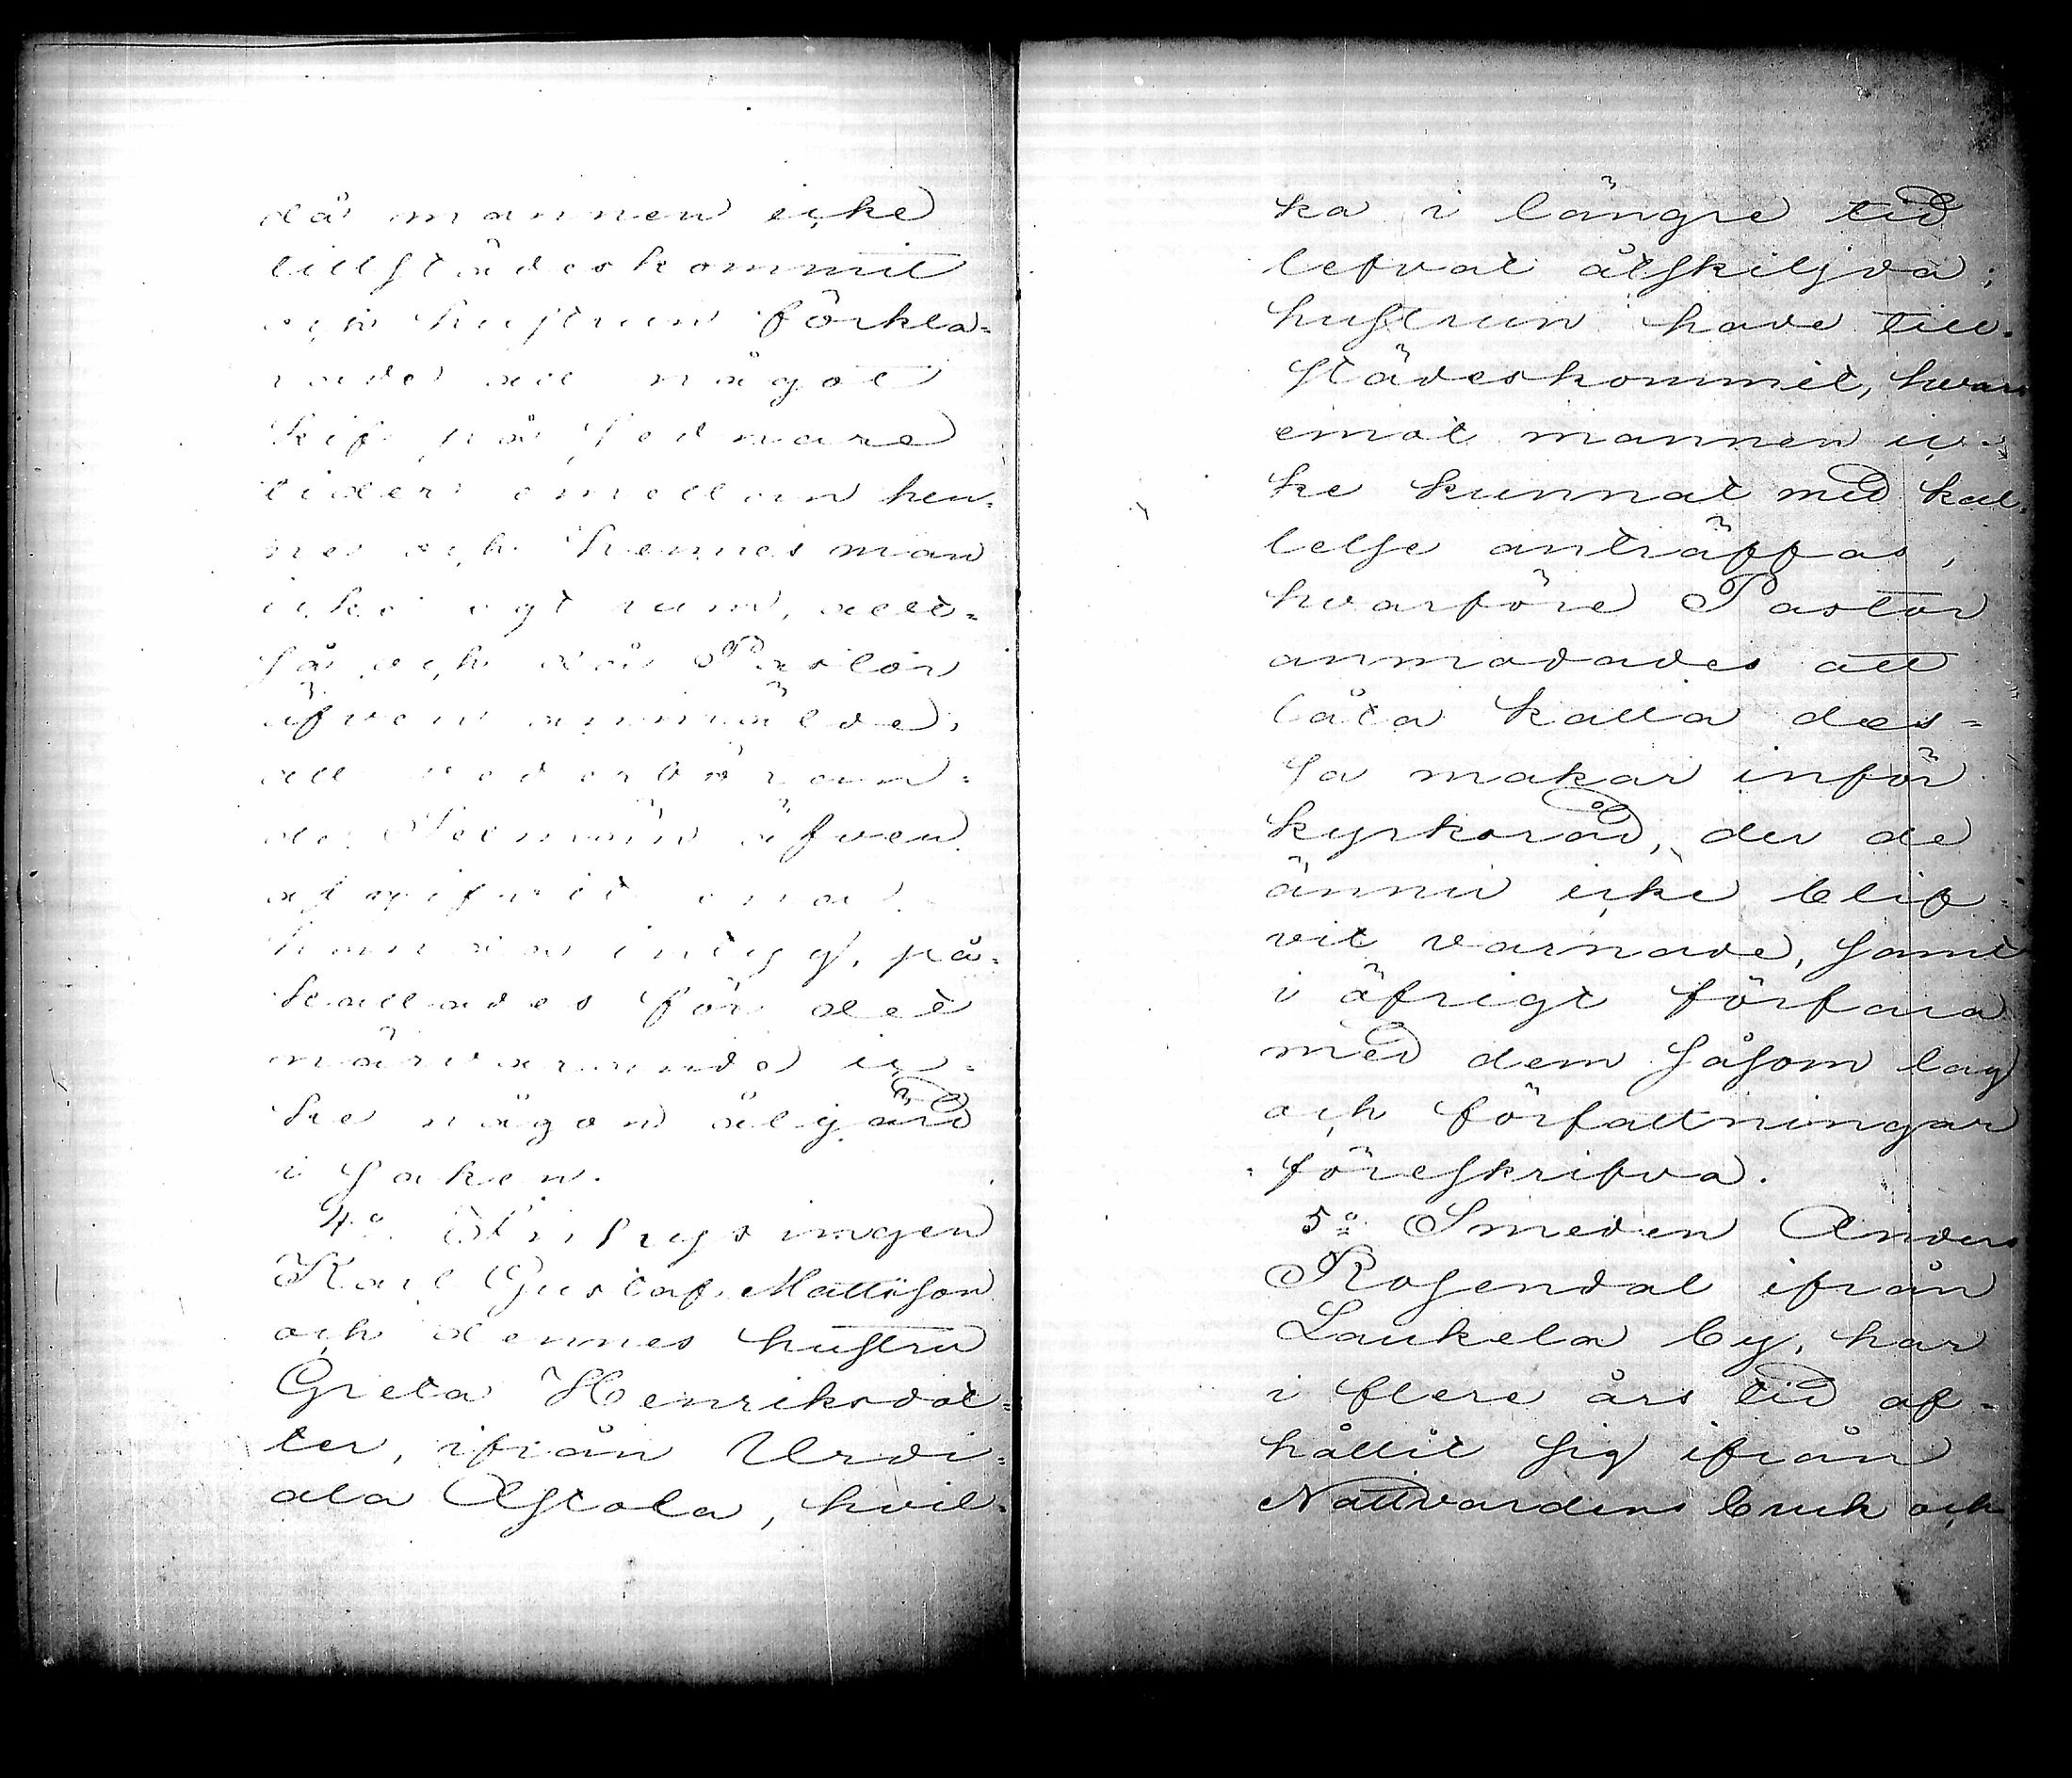 då mannen icke
tillstädeskommit
och hustrun förkla=
rade att något
kif på sednare
tider emellan hen=
nes och hennes man
icke egt rum, allt=
så och då Pastor
äfven anmälde,
att vederböran=
de äfven
, på=
kallades för det
närvarande ic=
ke någon åtgärd
i saken.
4:o Inhysingen
Karl Gustaf Mattsson
och dennes hustru
Greta Henriksdot=
ter, ifrån Urdi=
ala Astola, hvil=
ka i längre tid
lefvat åtskiljda;
hustrun hade till=
städeskommit, hvar
emot mannen ic=
ke kunnat med kal=
lelse anträffas,
hvarföre Pastor
anmodades att
låta kalla des=
sa makar inför
kyrkoråd, der de
ännu icke blif=
vit varnade, samt
i öfrigt förfara
med dem såsom lag
och författningar
föreskrifva.
5:o Smeden Anders
Rosendal ifrån
Laukela by, har
i flere års tid af=
hållit sig ifrån
Nattvardens bruk och